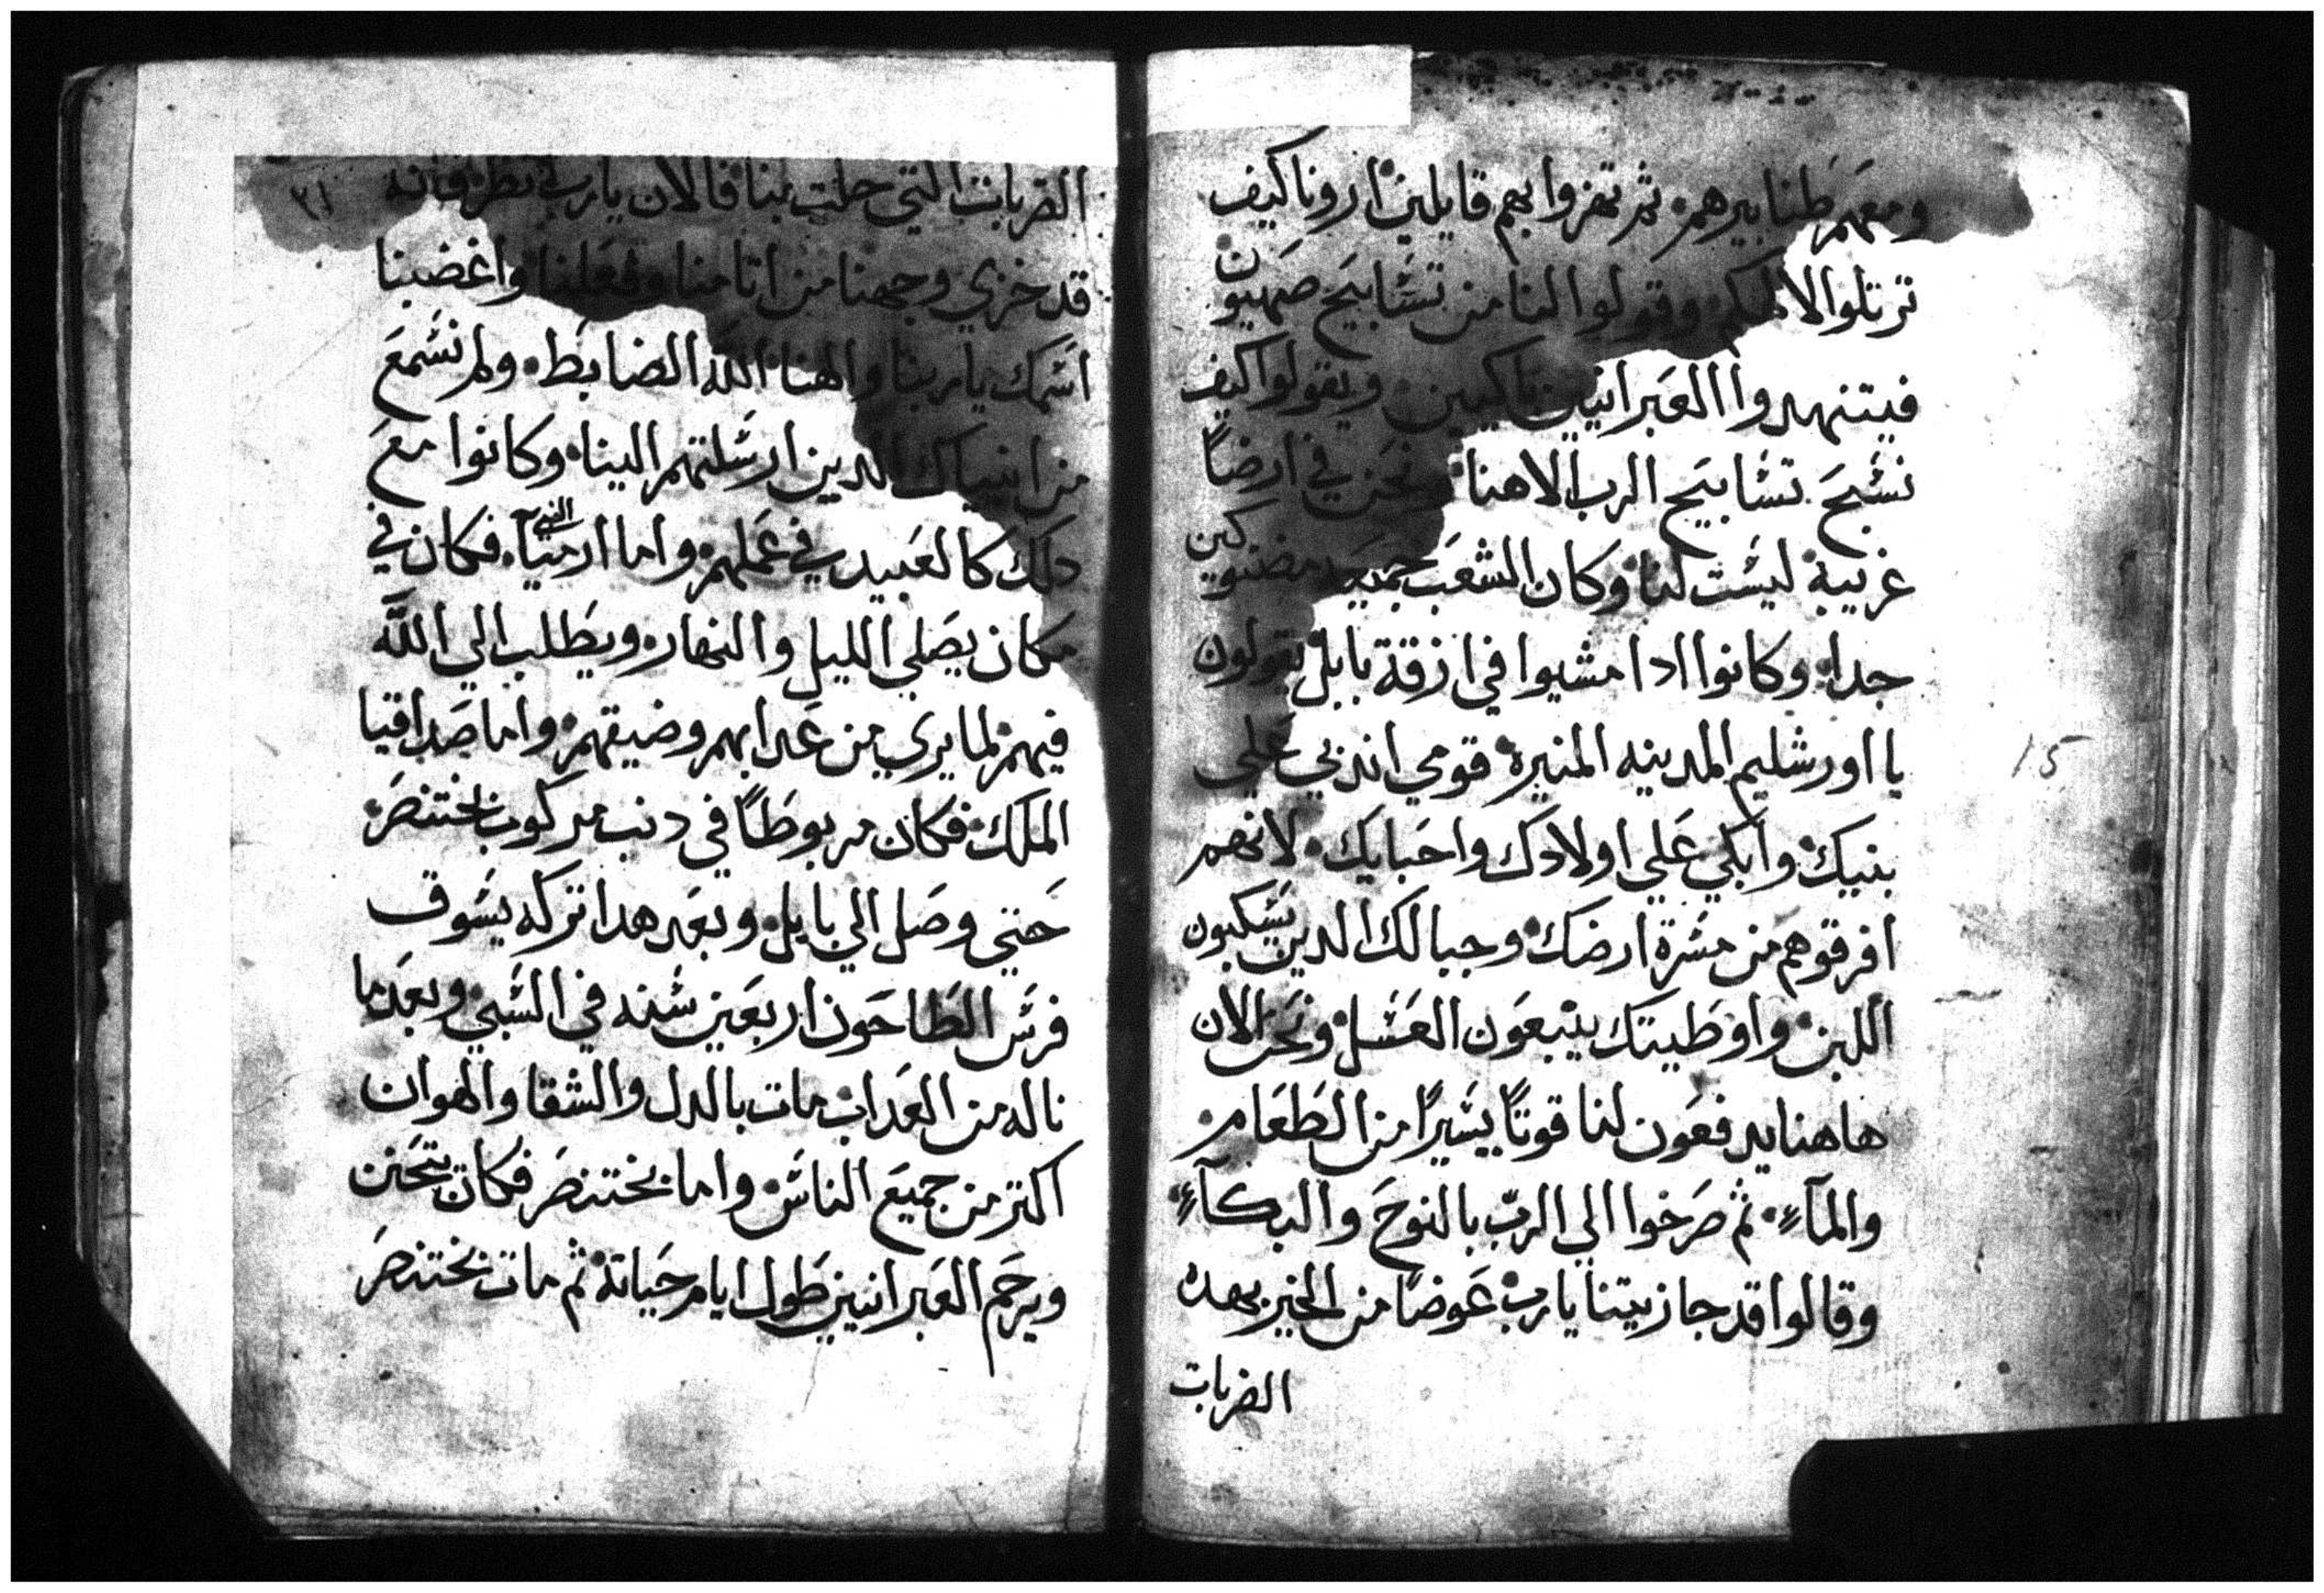 ومعهم طنابيرهم. ثم تهزوا بهم قايلين ارونا كيف
ترتلوا لالهكم. وقولوا لنا من تسابيح صهيون
فيتنهدوا العبرانيين باكيين. ويقولوا كيف
نسبح تسابيح الرب الاهنا ونحن في ارضاً
غريبة ليست لنا وكان الشعب جميعه مضنوكين
جدا. وكانوا ادا مشيوا في ازقة بابل يقولون
يا اورشليم المدينه المنيرة قومي اندبي علي
بنيك وابكي علي اولادك واحبايك. لانهم
افرقوهم من مسرة ارضك وجبالك الدين يسكبون
اللبن. واوطيتك ينبعون العسل ونحن الان
هاهنا يدفعون لنا قوتاً يسيراً من الطعام
والمآء. ثم صرخوا الي الرب بالنوح والبكآء
وقالوا قد جازيتنا يارب عوضاً من الخير بهده
الضربات
٣١
الضربات التي حلت بنا فالان يارب
قد خزي وجهنا من اتامنا وفعلنا واغضبنا
اسمك ياربنا والهنا الله الضابط. ولم نسمع
من انبياك الدين ارسلتهم الينا وكانوا مع
دلك كالعبيد في عملهم واما ارميآ النبي. فكان في
مكان يصلي الليل والنهار. ويطلب الي الله
فيهم لما يري من عدابهم وضيقهم واما صداقيا
الملك فكان مربوطاً في دنب مركوب بختنصر
حتي وصل الي بابل وبعد هدا تركه يسوق
فرس الطاحون اربعين سنه في السبي وبعد ما
ناله من العداب مات بالدل والشقا والهوان
اكتر من جميع الناس واما بختنصر فكان يتحنن
ويرحم العبرانيين طول ايام حياته ثم مات بختنصر
15